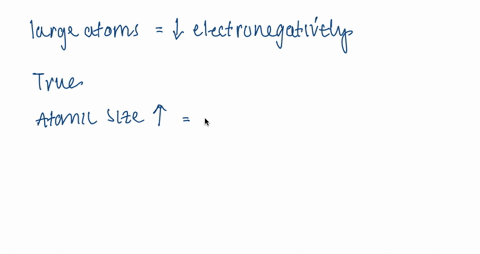 large atoms = ↓ electronegatively
True
Atomic size ↑ =